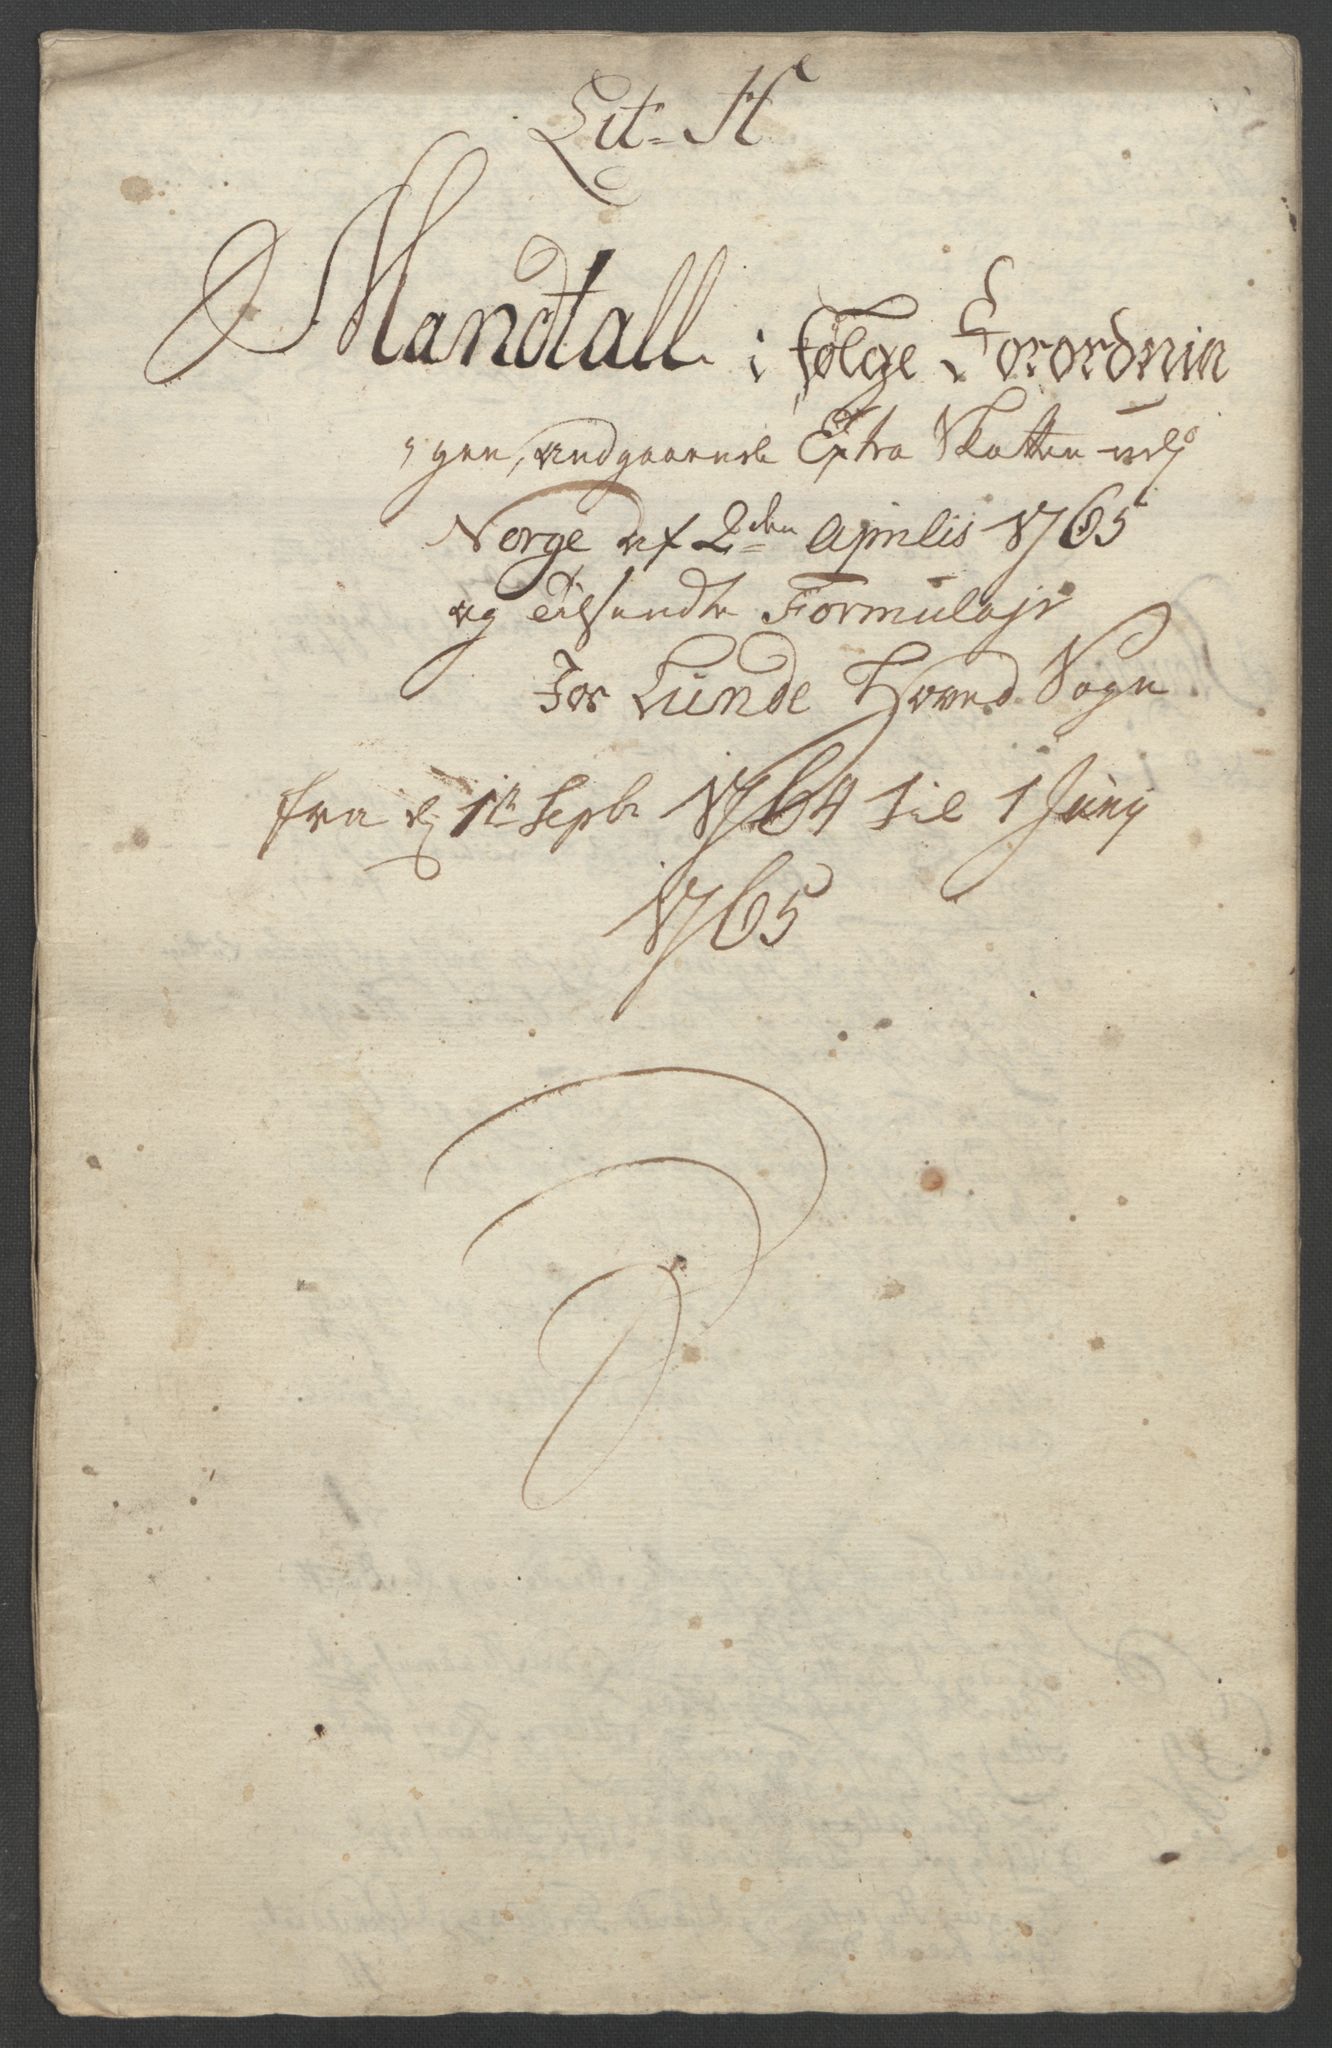 Lit. H
Mandtall i følge Forordnin
gen, andgaaende Extra Skatten udj
Norge af 2den Aprilis 1765
og Tilsendte Formulajr
For Lunde Hoved Sogn
fra d 1te Septbr 1764 til 1 Junij
1765